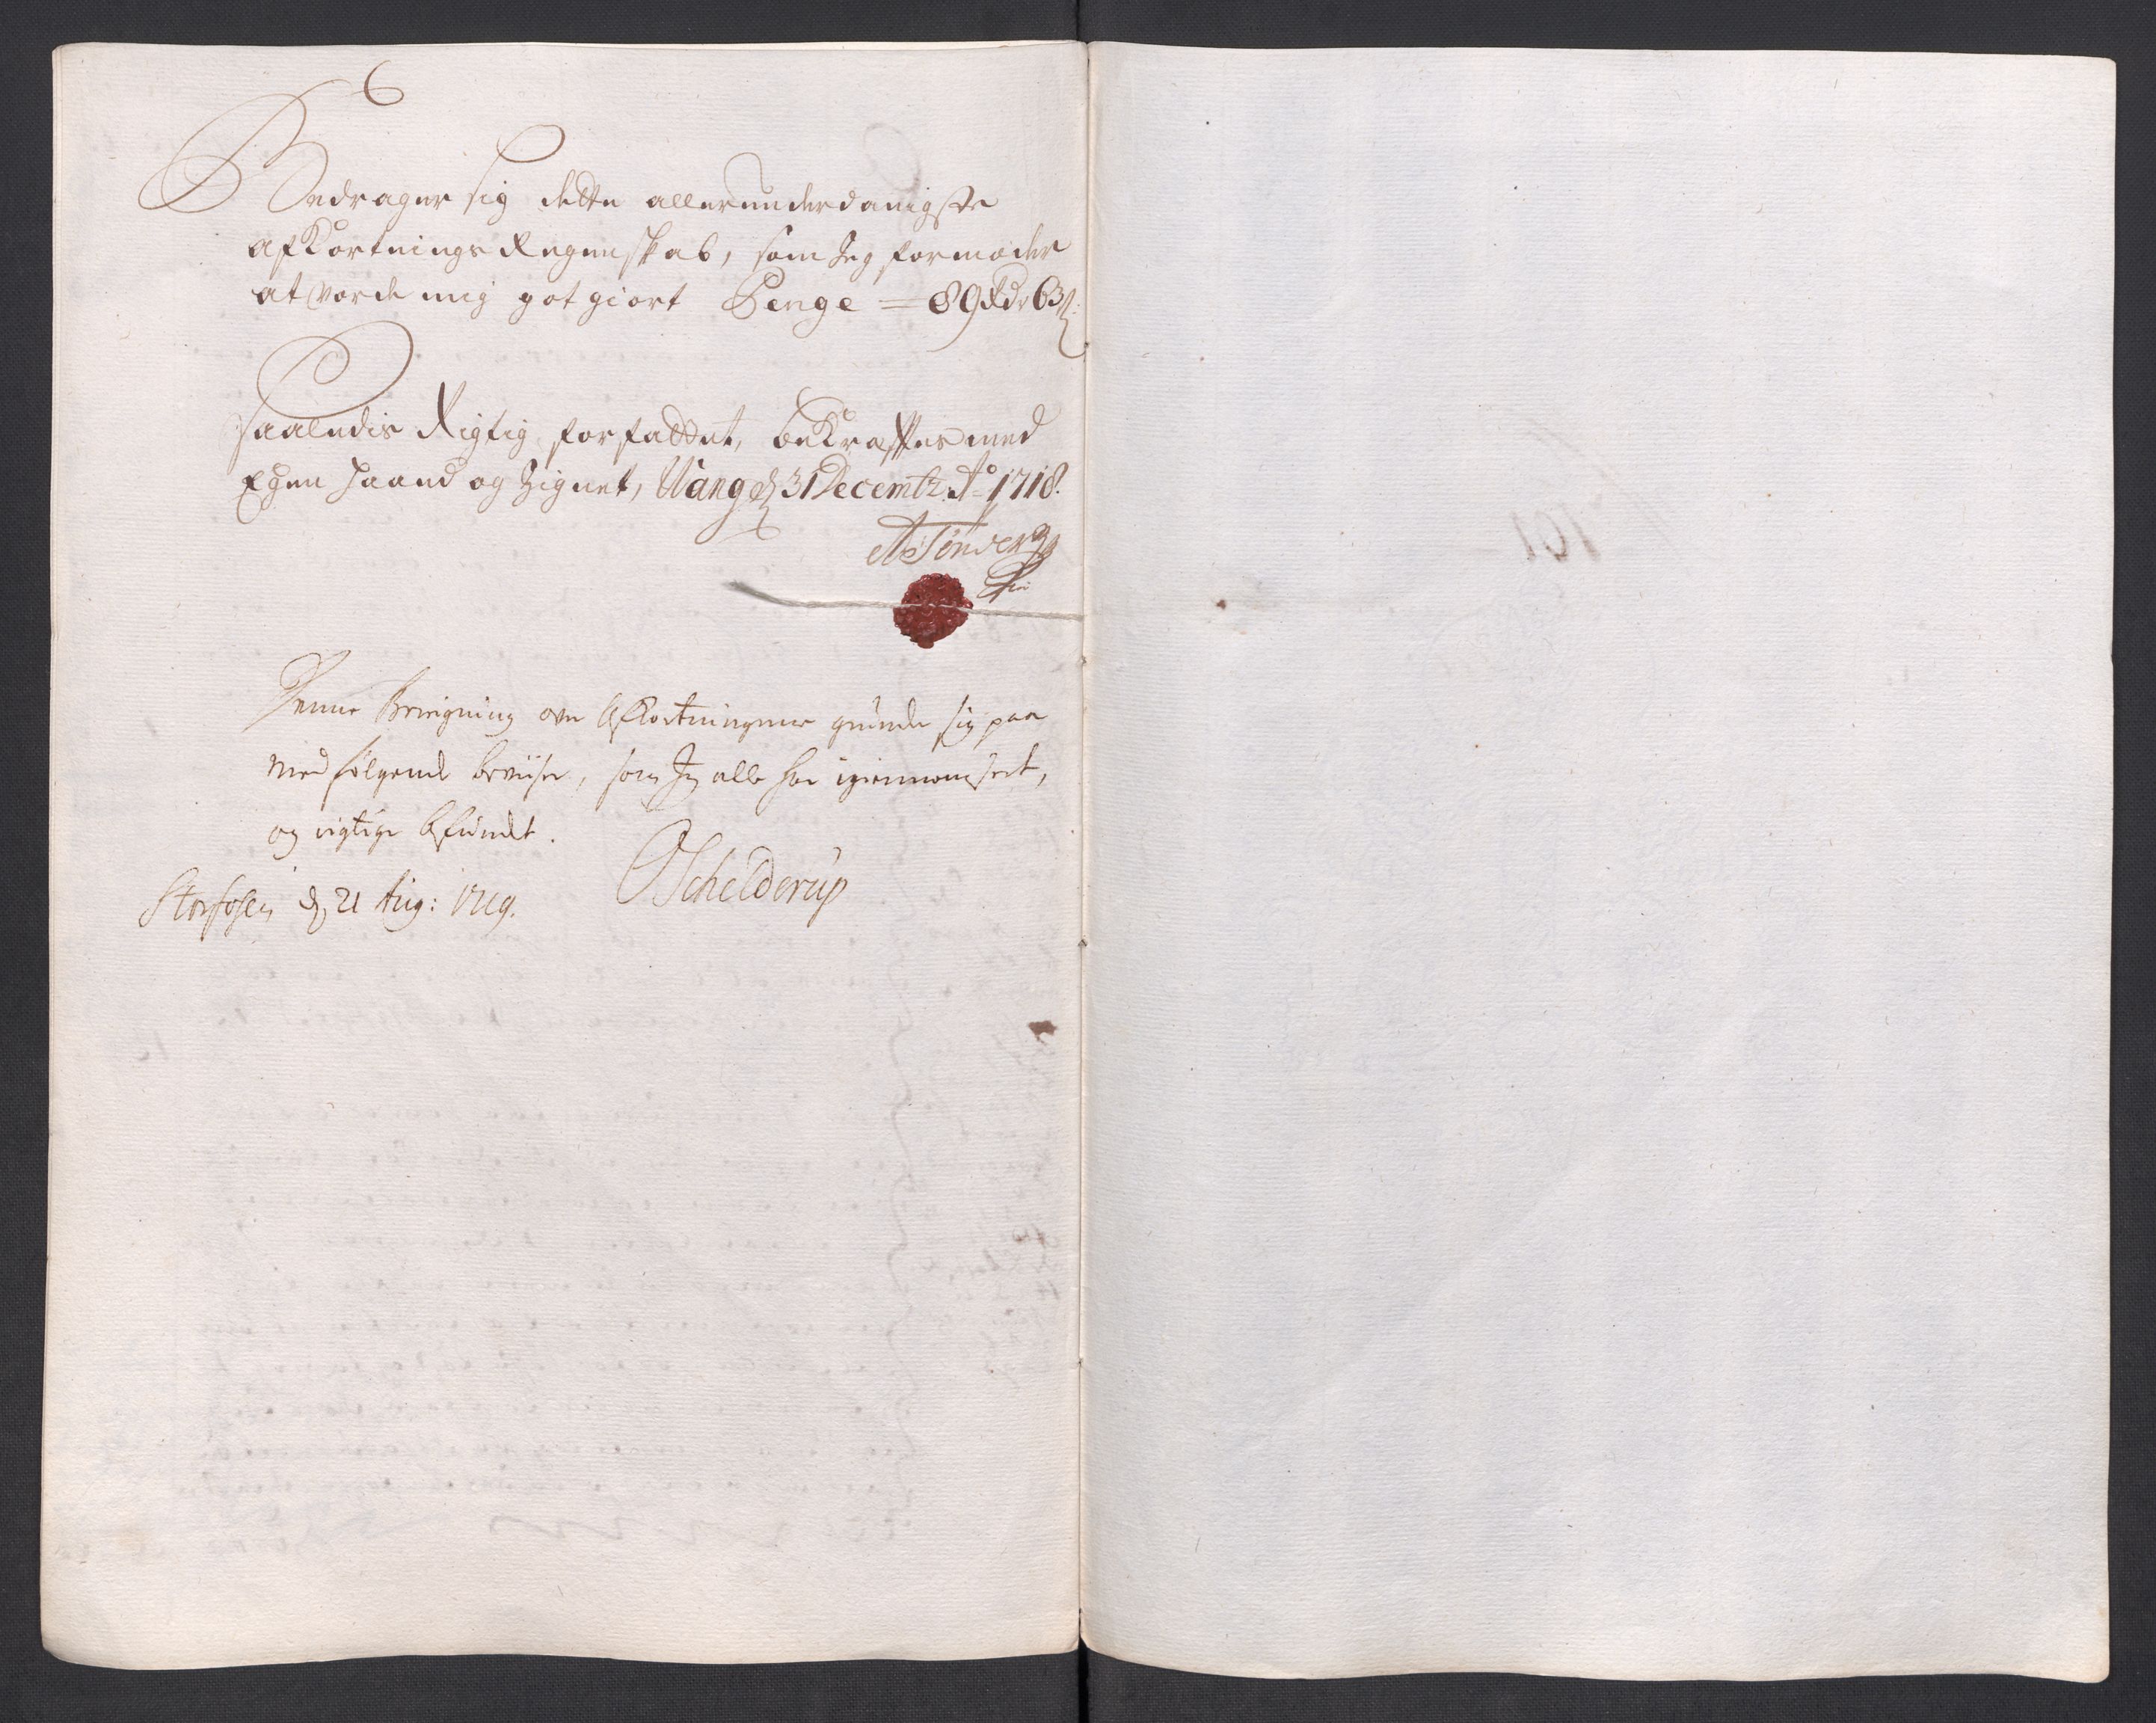 Bedrager sig dette allerunderdanigste
afkortnings Regenskab, som Jeg formoder
at vorde mig got giort Penge = 89 Rdr 63 s:
Saaledis Rigtig forfattet, bekræfftes med
Egen Haand og Zignet, Wang d 31 Decembr: Ao 1718.
Tønder
Denne Beregning over Afkortningerne grunde sig paa
medfølgende beviiser, som Jeg alle har igiennemseet,
og rigtige befundet.
OSchelderup
Storfosen d 21 Aug: 1719.